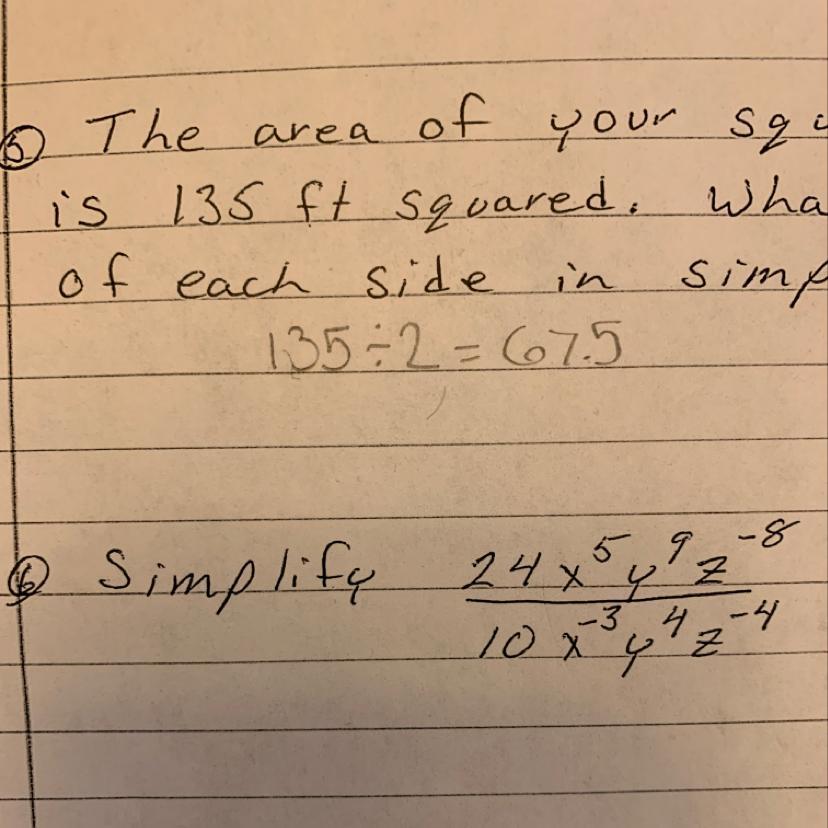 ⑤ The area of your squ
is 135 ft squared. Wha
of each side in simp
135÷2 = 67.5
⑥ Simplify 24x⁵y⁹z⁻⁸
10x⁻³y⁴z⁻⁴